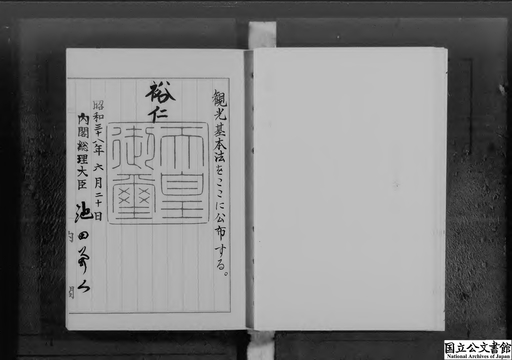 観光基本法をここに公布する。
裕仁
天皇
御璽
昭和三十八年 六月二十日
内閣総理大臣 池田勇人
国立公文書館
National Archives of Japan